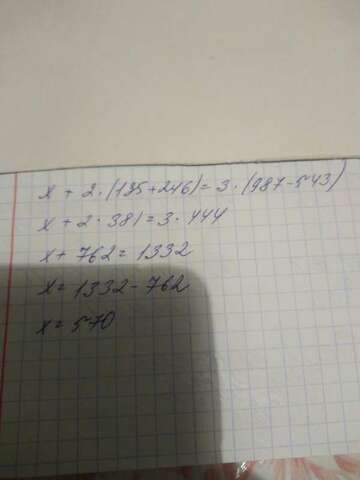 x + 2 · (135+246) = 3 · (987-543)
x + 2 · 381 = 3 · 444
x + 762 = 1332
x = 1332 - 762
x = 570